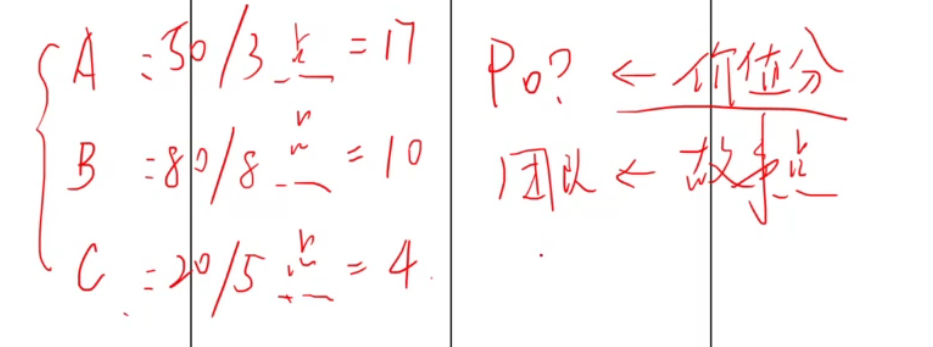 A : 50/3点 = 17
B : 80/8点 = 10
C : 20/5点 = 4
PO? ← 价值分
团队 ← 故事点